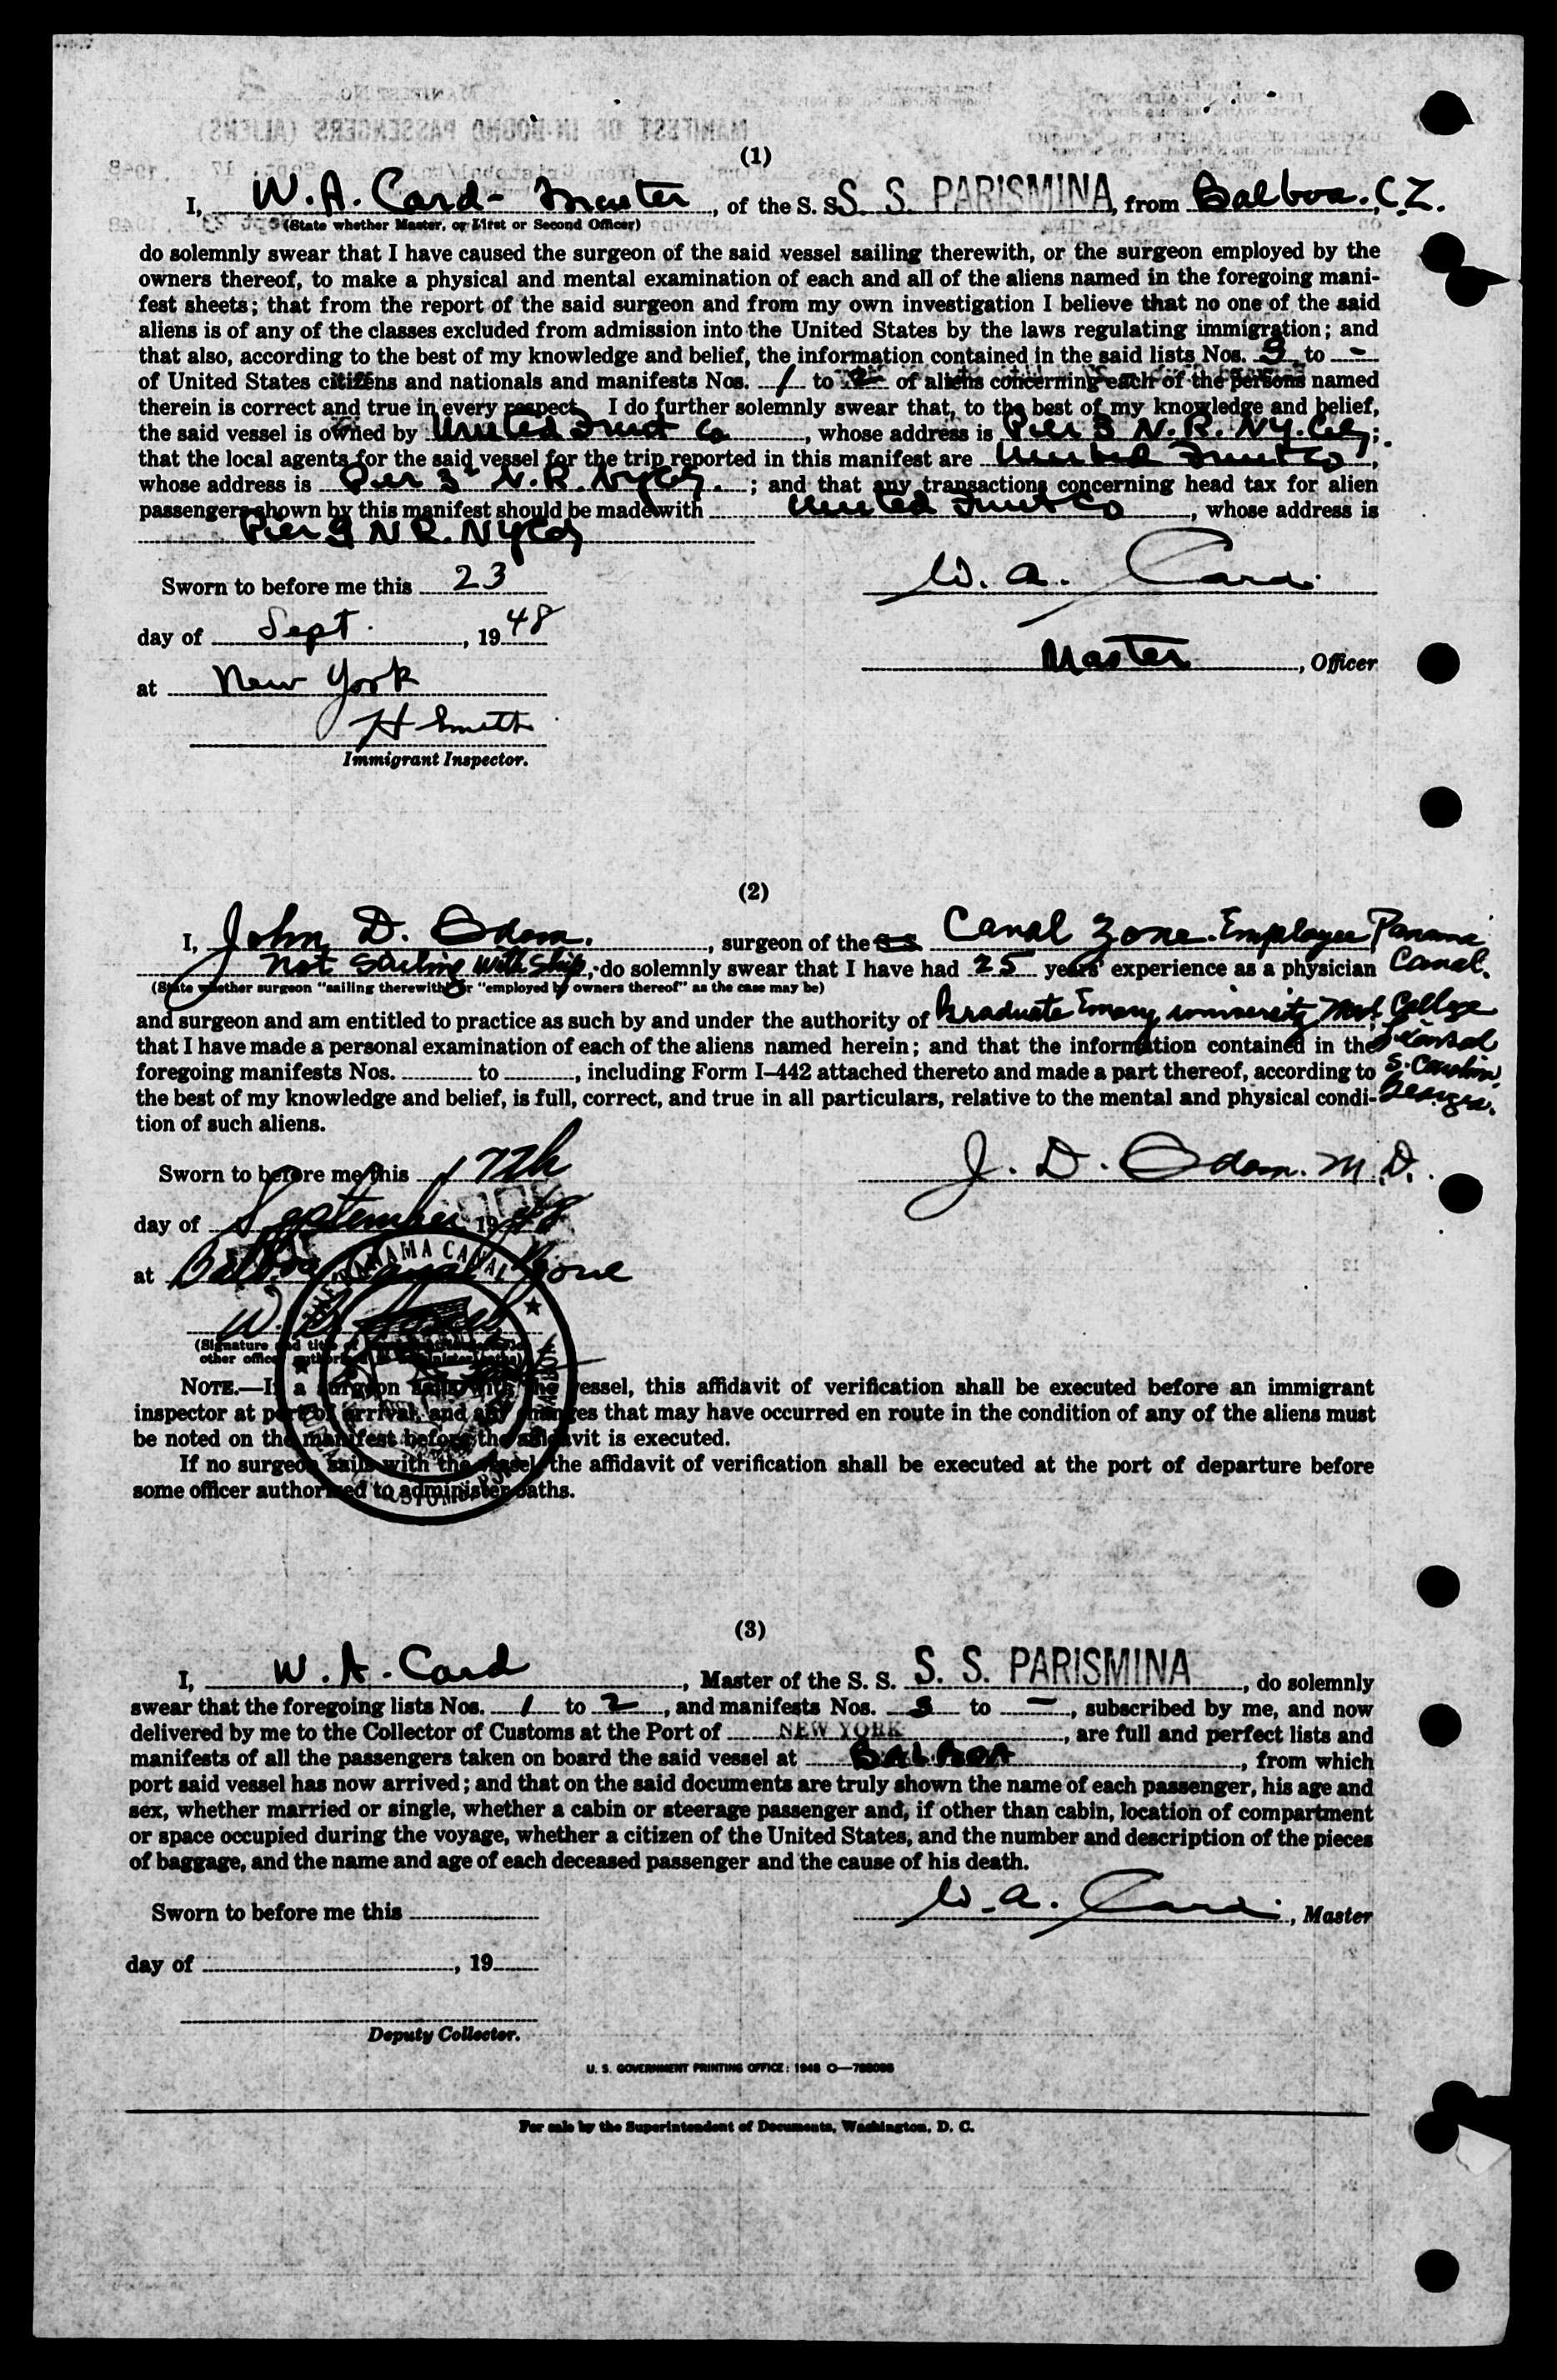 (1)
I, W. A. Card - Master, of the S. S. S. S. PARISMINA, from Balboa, C.Z.
(State whether Master, or First or Second Officer)
do solemnly swear that I have caused the surgeon of the said vessel sailing therewith, or the surgeon employed by the
owners thereof, to make a physical and mental examination of each and all of the aliens named in the foregoing mani-
fest sheets; that from the report of the said surgeon and from my own investigation I believe that no one of the said
aliens is of any of the classes excluded from admission into the United States by the laws regulating immigration; and
that also, according to the best of my knowledge and belief, the information contained in the said lists Nos. 3 to -
of United States citizens and nationals and manifests Nos. 1 to 2 of aliens concerning each of the persons named
therein is correct and true in every respect. I do further solemnly swear that, to the best of my knowledge and belief,
the said vessel is owned by United Fruit Co, whose address is Pier 3 N. R. N.Y. City;
that the local agents for the said vessel for the trip reported in this manifest are United Fruit Co,
whose address is Pier 3 N. R. NYCity.; and that any transactions concerning head tax for alien
passengers shown by this manifest should be made with United Fruit Co, whose address is
Pier 3 N R. NYCity
Sworn to before me this 23
W. A. Card
day of Sept., 1948
Master, Officer
at New York
H Smith
Immigrant Inspector.
(2)
I, John D. Odom., surgeon of the S S Canal Zone. Employee Panama
not Sailing with Ship, do solemnly swear that I have had 25 years' experience as a physician Canal.
(State whether surgeon "sailing therewith" or "employed by owners thereof" as the case may be)
and surgeon and am entitled to practice as such by and under the authority of Graduate Emory University Med. College
that I have made a personal examination of each of the aliens named herein; and that the information contained in the
foregoing manifests Nos. to , including Form I-442 attached thereto and made a part thereof, according to S. Carolina,
the best of my knowledge and belief, is full, correct, and true in all particulars, relative to the mental and physical condi- Georgia.
tion of such aliens.
Sworn to before me this 17th
J. D. Odom. M.D.
day of September 1948
at Balboa Canal Zone
PANAMA CANAL
(Signature and title of
other officer authorized to administer oaths)
NOTE.—If a surgeon sails with the vessel, this affidavit of verification shall be executed before an immigrant
inspector at port of arrival, and any changes that may have occurred en route in the condition of any of the aliens must
be noted on the manifest before the affidavit is executed.
If no surgeon sails with the vessel, the affidavit of verification shall be executed at the port of departure before
some officer authorized to administer oaths.
(3)
I, W. A. Card, Master of the S. S. S. S. PARISMINA, do solemnly
swear that the foregoing lists Nos. 1 to 2, and manifests Nos. 3 to -, subscribed by me, and now
delivered by me to the Collector of Customs at the Port of NEW YORK, are full and perfect lists and
manifests of all the passengers taken on board the said vessel at BALBOA, from which
port said vessel has now arrived; and that on the said documents are truly shown the name of each passenger, his age and
sex, whether married or single, whether a cabin or steerage passenger and, if other than cabin, location of compartment
or space occupied during the voyage, whether a citizen of the United States, and the number and description of the pieces
of baggage, and the name and age of each deceased passenger and the cause of his death.
Sworn to before me this
W. A. Card, Master
day of , 19
Deputy Collector.
U. S. GOVERNMENT PRINTING OFFICE: 1948 O—
For sale by the Superintendent of Documents, Washington, D. C.